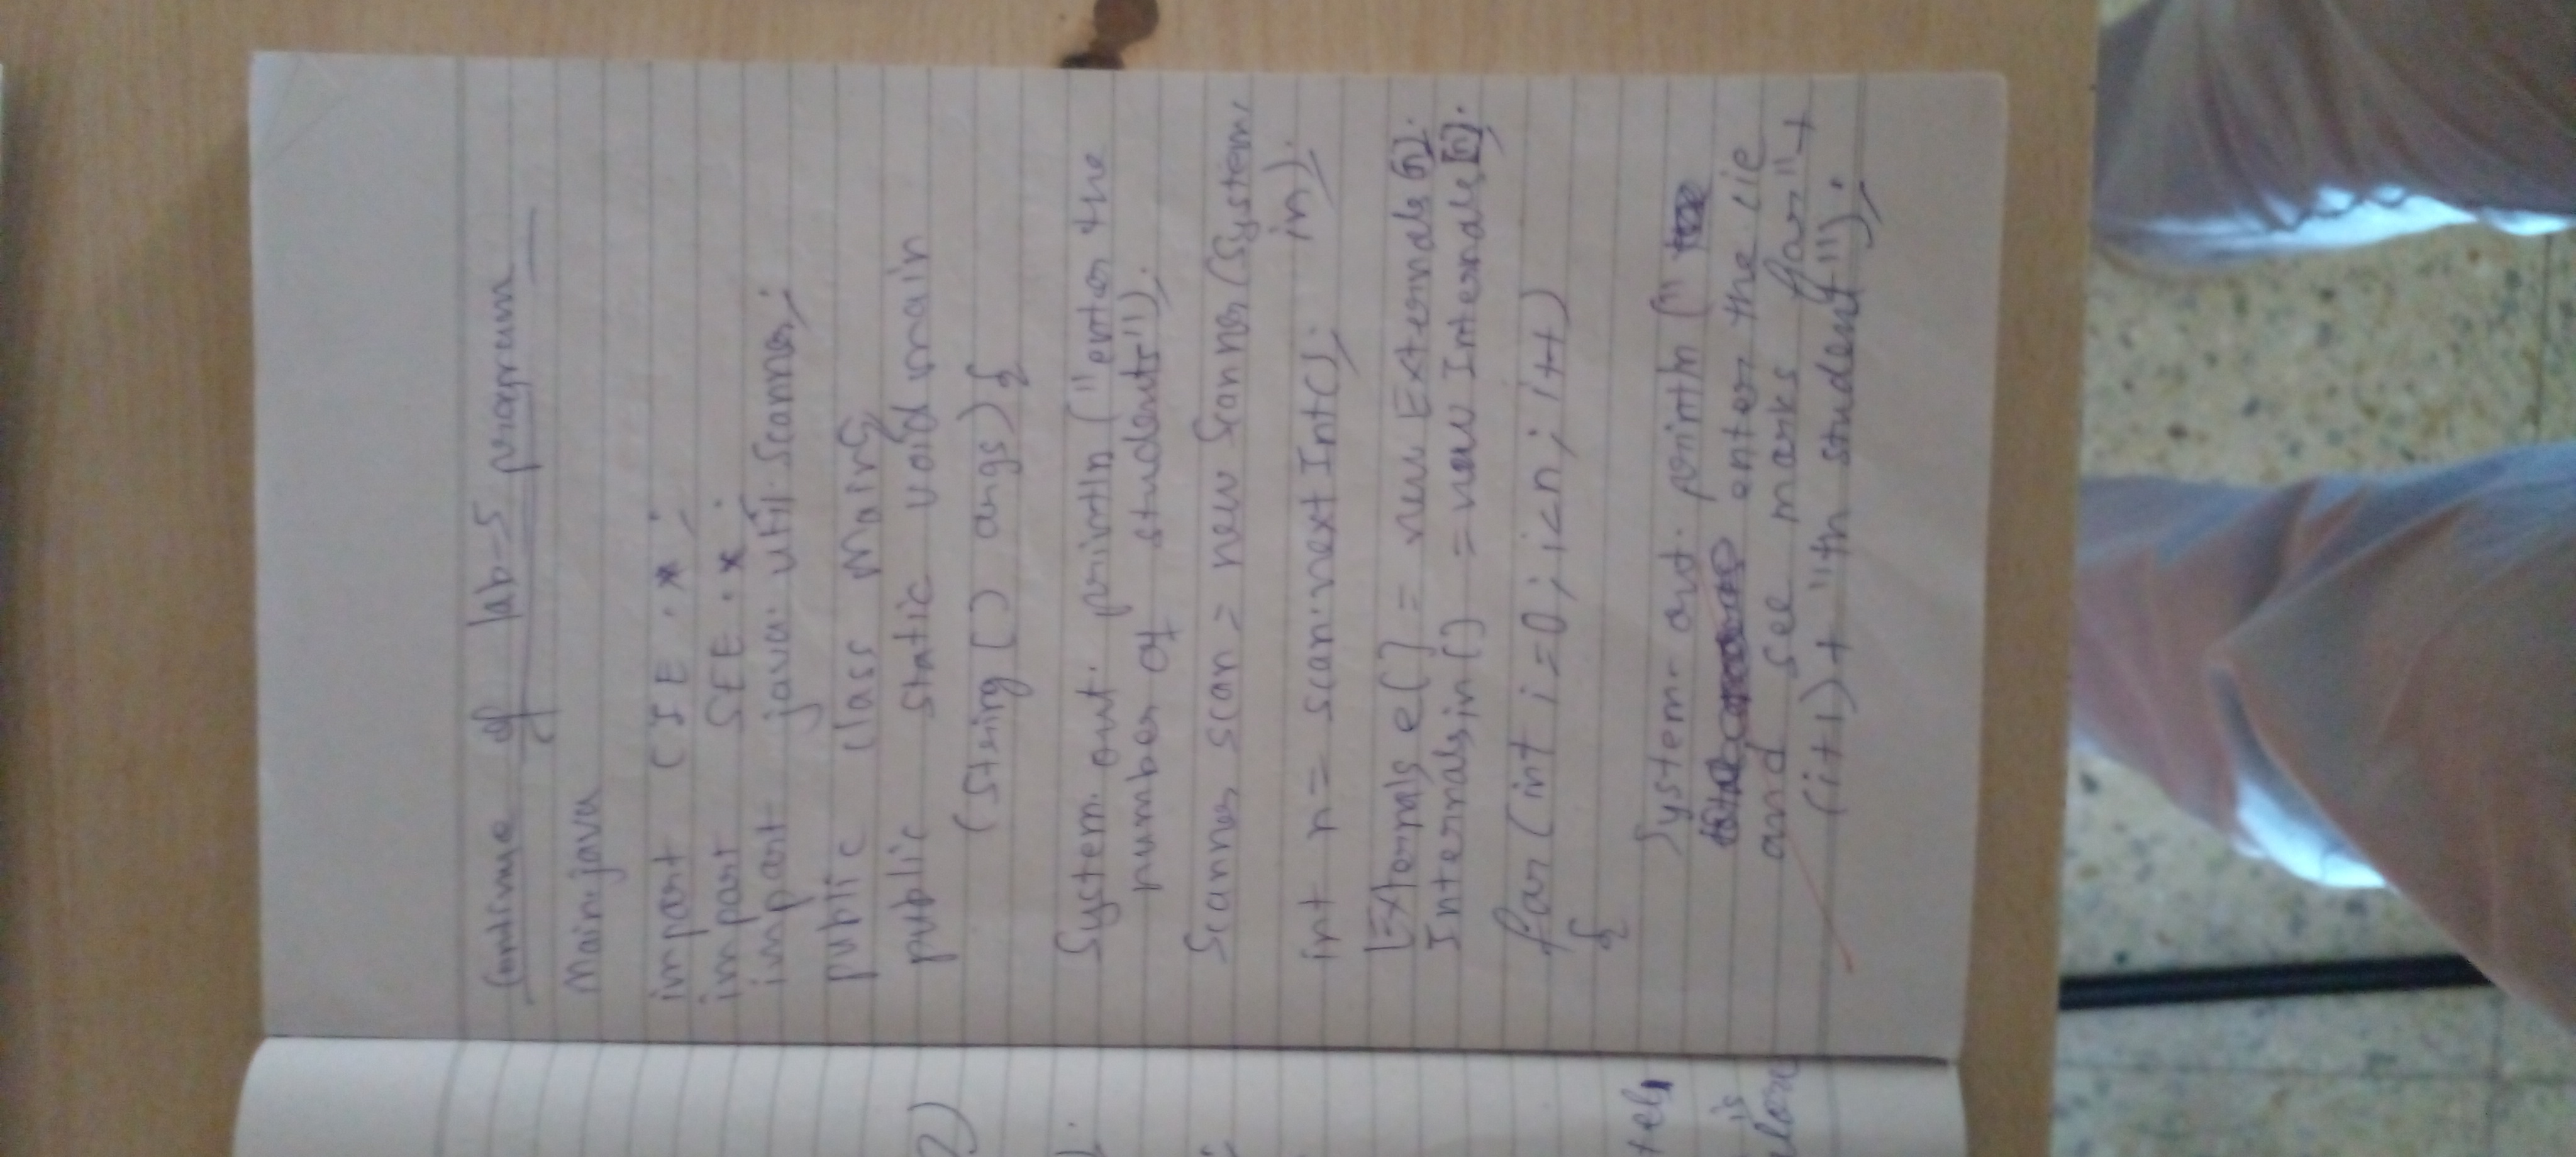 Continue of lab-5 program
Main.java
import CIE.*;
import SEE.*;
import java.util.Scanner;
public class Main{
public static void main
(String [] args){
System.out.println("enter the
number of students");
Scanner scan = new Scanner(System.
in);
int n = scan.nextInt();
Externals e[] = new Externals[n];
Internals in[] = new Internals[n];
for(int i=0; i<n; i++)
{
System.out.println("
enter the cie
and see marks for"+
(i+1)+"th student");
2)
is